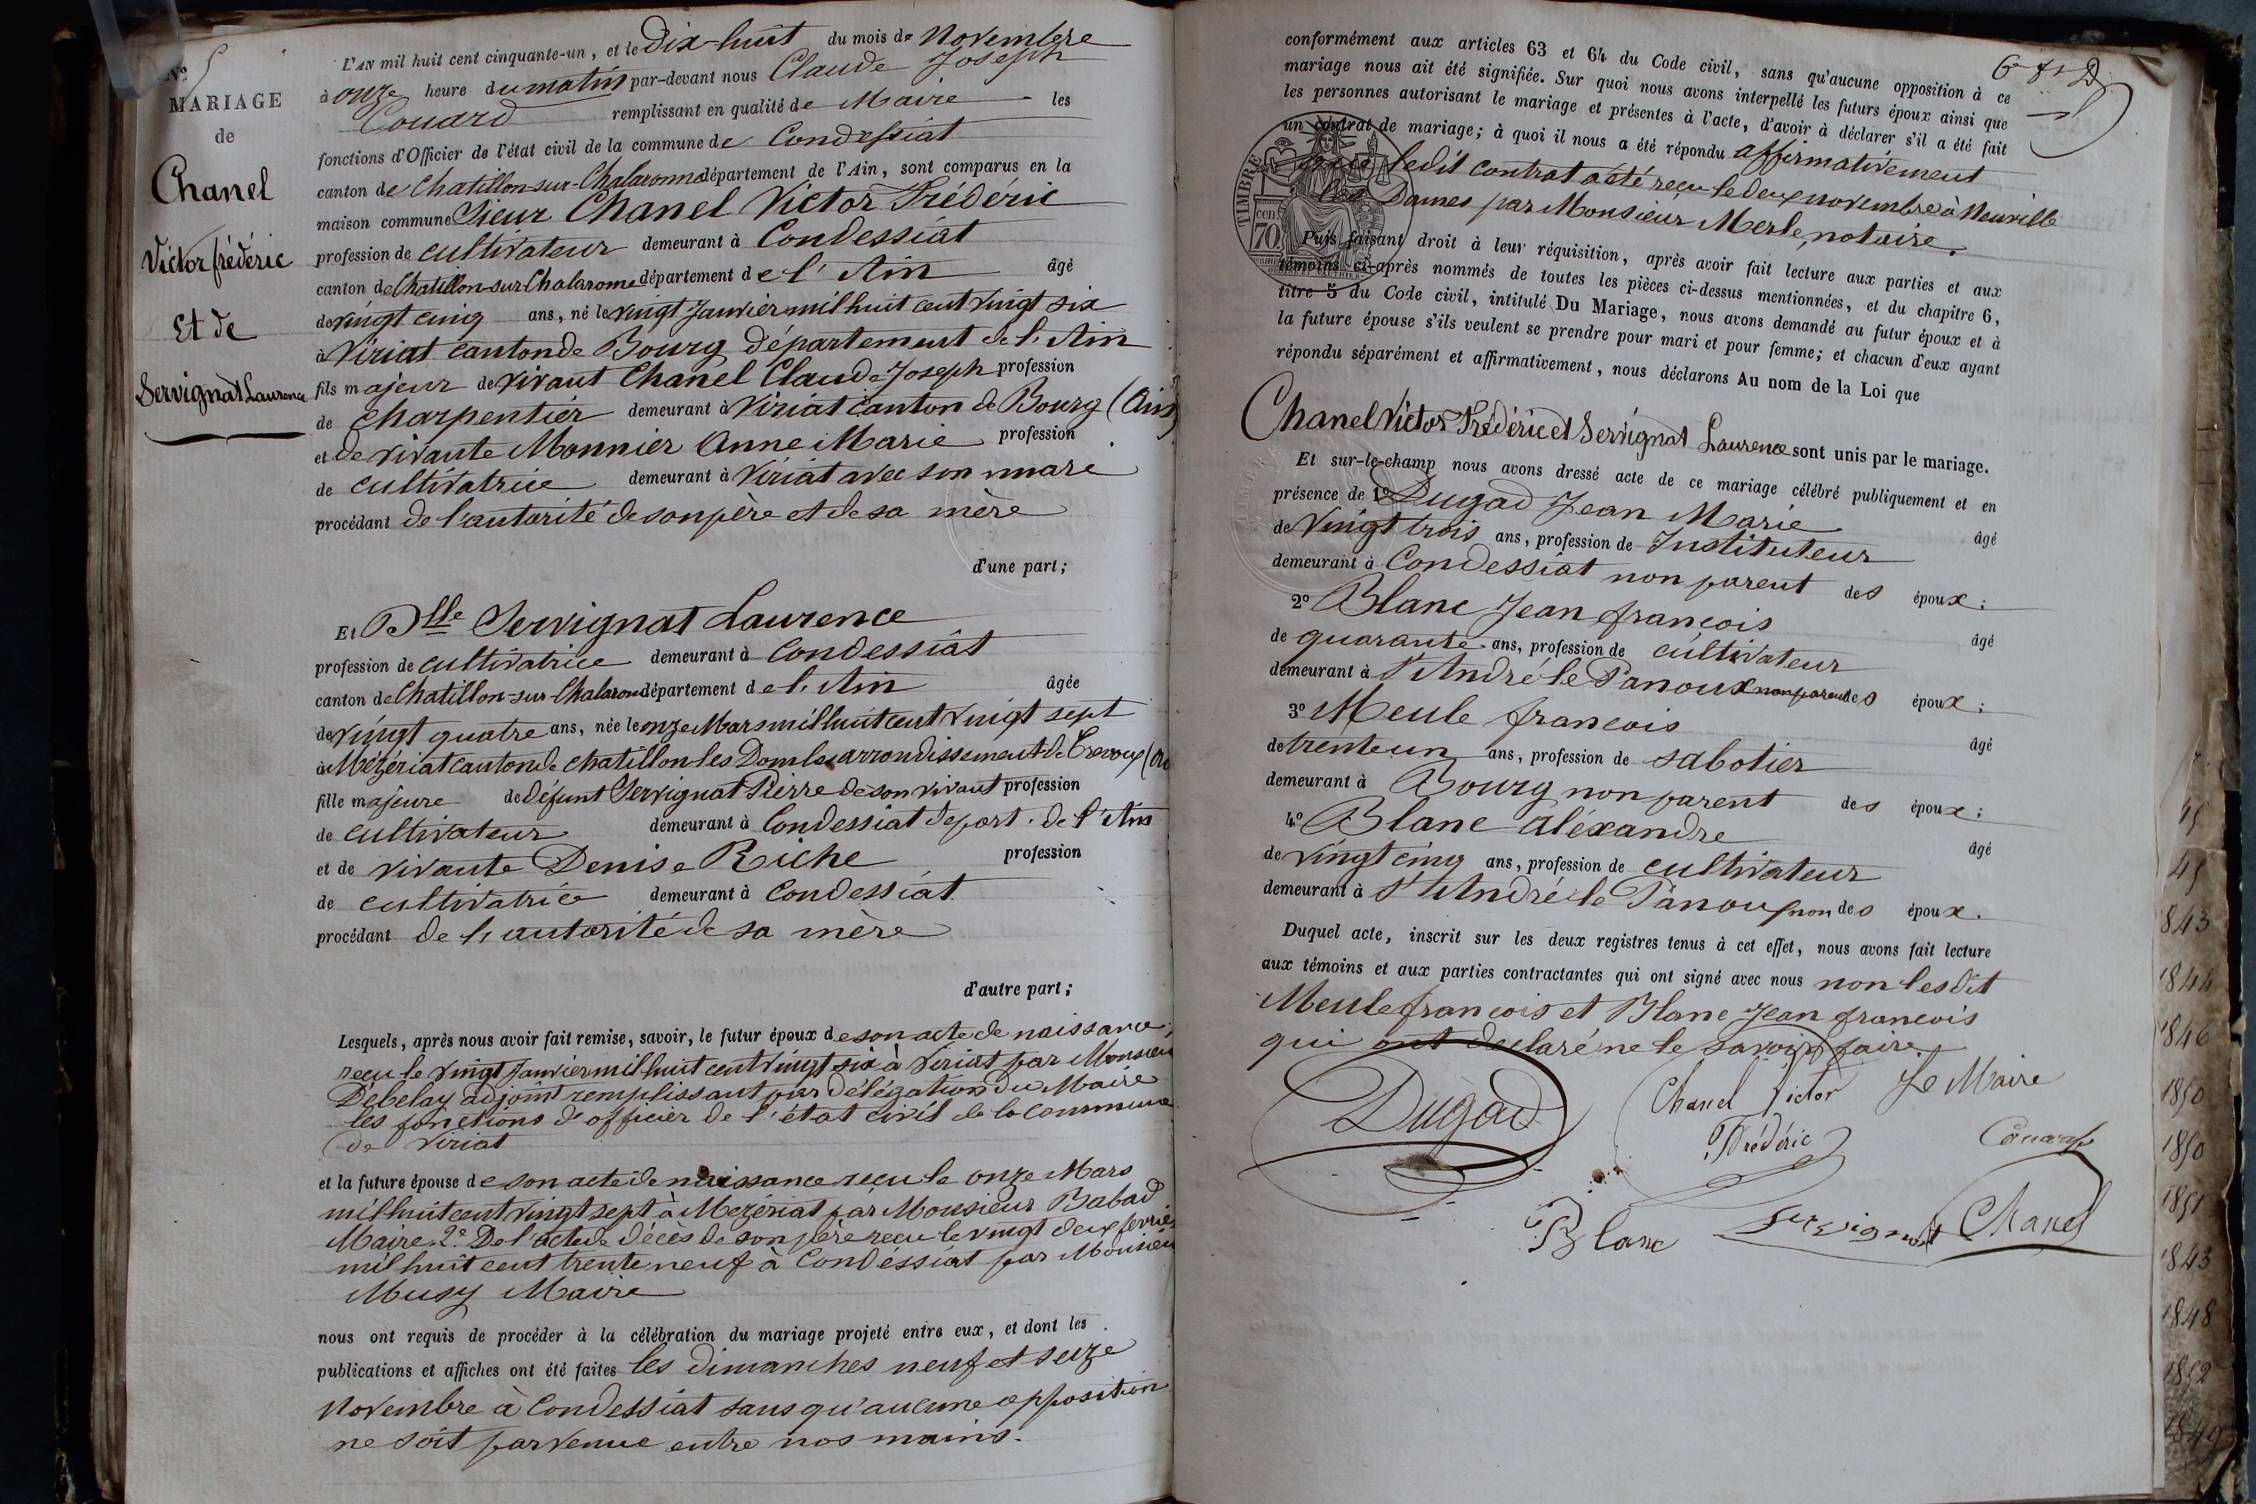 N° 5
MARIAGE
de
Chanel
Victor frédéric
Et de
Servignat Laurence
L'AN mil huit cent cinquante-un, et le Dix-huit du mois de Novembre
à onze heure du matin par-devant nous Claude Joseph
Couard remplissant en qualité de Maire les
fonctions d'Officier de l'état civil de la commune de Condessiat
canton de Chatillon-sur-Chalaronne département de l'Ain, sont comparus en la
maison commune Sieur Chanel Victor Frédéric
profession de cultivateur demeurant à Condessiat
canton de Chatillon-sur Chalaronne département de l'Ain âgé
de vingt cinq ans, né le vingt Janvier mil huit cent vingt six
à Viriat canton de Bourg département de l'Ain
fils majeur de vivant Chanel Claude Joseph profession
de charpentier demeurant à Viriat canton de Bourg (Ain)
et de vivante Monnier Anne Marie profession
de cultivatrice demeurant à Viriat avec son mari
procédant de l'autorité de son père et de sa mère
d'une part;
Et Dlle Servignat Laurence
profession de cultivatrice demeurant à Condessiat
canton de Chatillon-sur-Chalaron département de l'Ain âgée
de vingt quatre ans, née le onze Mars mil huit cent vingt sept
à Mézériat canton de chatillon les Dombes arrondissement de Trevoux
fille majeure de défunt Servignat Pierre de son vivant profession
de cultivateur demeurant à Condessiat depart. de l'Ain
et de vivante Denise Riche profession
de cultivatrice demeurant à Condessiat
procédant de l'autorité de sa mère
d'autre part;
Lesquels, après nous avoir fait remise, savoir, le futur époux de son acte de naissance,
reçu le vingt Janvier mil huit cent vingt six à Viriat par Monsieu
Debelay adjoint remplissant par délégation du Maire
les fonctions d'officier de l'état civil de la commune
de Viriat
et la future épouse de son acte de naissance reçu le onze Mars
mil huit cent vingt sept à Mezériat par Monsieur Babad
Maire 2° De l'acte de décès de son père reçu le vingt deux fevrier
mil huit cent trente neuf à Condéssiat par Monsieu
Musy Maire
nous ont requis de procéder à la célébration du mariage projeté entre eux, et dont les
publications et affiches ont été faites les dimanches neuf et seize
novembre à Condessiat sans qu'aucune opposition
ne soit parvenue entre nos mains.
conformément aux articles 63 et 64 du Code civil, sans qu'aucune opposition à ce
mariage nous ait été signifiée. Sur quoi nous avons interpellé les futurs époux ainsi que
les personnes autorisant le mariage et présentes à l'acte, d'avoir à déclarer s'il a été fait
un contrat de mariage; à quoi il nous a été répondu affirmativement
que ledit contrat a été reçu le deux novembre à Neuville
les Dames par Monsieur Merle, notaire.
TIMBRE
cen
70
Puis faisant droit à leur réquisition, après avoir fait lecture aux parties et aux
témoins ci-après nommés de toutes les pièces ci-dessus mentionnées, et du chapitre 6,
titre 5 du Code civil, intitulé Du Mariage, nous avons demandé au futur époux et à
la future épouse s'ils veulent se prendre pour mari et pour femme; et chacun d'eux ayant
répondu séparément et affirmativement, nous déclarons Au nom de la Loi que
Chanel Victor Frédéric et Servignat Laurence sont unis par le mariage.
Et sur-le-champ nous avons dressé acte de ce mariage célébré publiquement et en
présence de 1° Dugad Jean Marie âgé
de vingt trois ans, profession de Instituteur
demeurant à Condessiat non parent des époux:
2° Blanc Jean françois âgé
de quarante ans, profession de cultivateur
demeurant à St André le Panoux non parent des époux:
3° Meule françois âgé
de trente un ans, profession de sabotier
demeurant à Bourg non parent des époux:
4° Blanc Aléxandre âgé
de vingt cinq ans, profession de cultivateur
demeurant à St André le Panoux non des époux.
Duquel acte, inscrit sur les deux registres tenus à cet effet, nous avons fait lecture
aux témoins et aux parties contractantes qui ont signé avec nous non lesdit
Meule françois et Blanc Jean françois
qui ont declaré ne le savoir faire.
Dugad
Chanel Victor
Frédéric
Le Maire
Couard
Blanc
Servignat
Chanel
45
45
843
1844
1846
1850
1850
1851
1843
1848
1852
1849